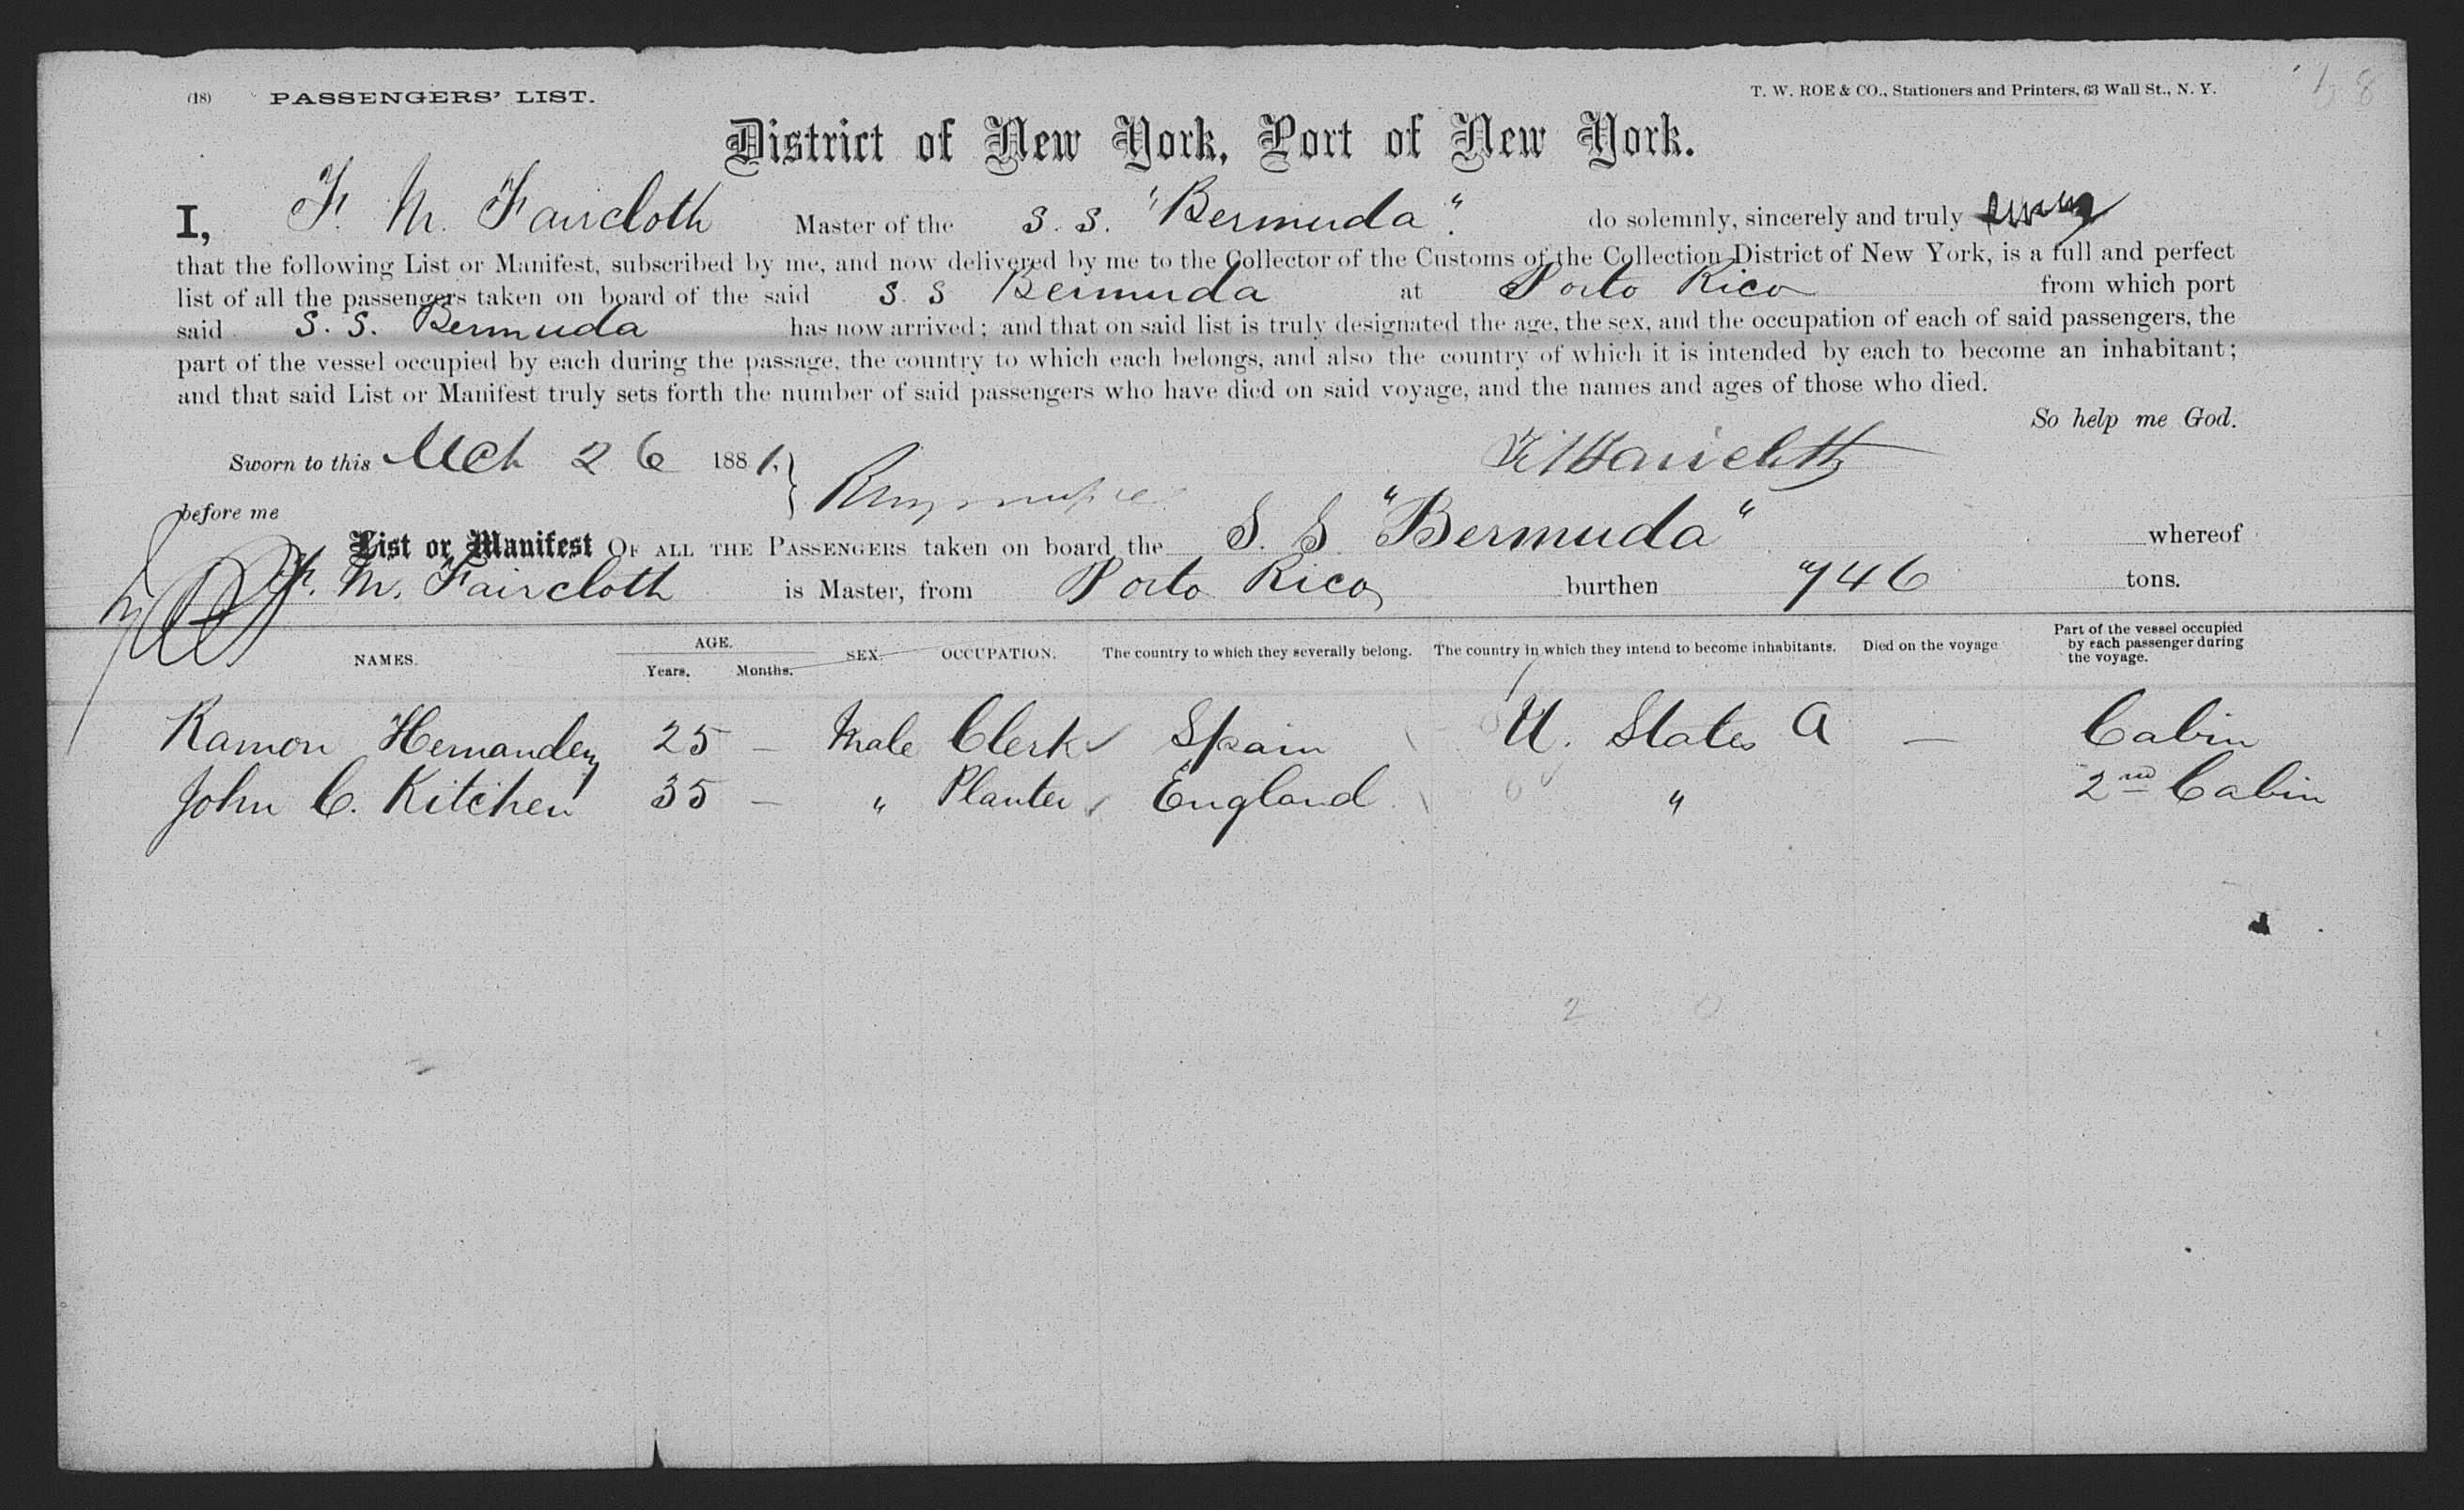 (18) PASSENGERS' LIST. T. W. ROE & CO., Stationers and Printers, 63 Wall St., N. Y.
District of New York, Port of New York.
I, F. M. Faircloth Master of the S. S. "Bermuda". do solemnly, sincerely and truly
that the following List or Manifest, subscribed by me, and now delivered by me to the Collector of the Customs of the Collection District of New York, is a full and perfect
list of all the passengers taken on board of the said S. S Bermuda at Porto Rico from which port
said S. S. Bermuda has now arrived; and that on said list is truly designated the age, the sex, and the occupation of each of said passengers, the
part of the vessel occupied by each during the passage, the country to which each belongs, and also the country of which it is intended by each to become an inhabitant;
and that said List or Manifest truly sets forth the number of said passengers who have died on said voyage, and the names and ages of those who died.
So help me God.
Sworn to this Mch 26 1881. F M Faircloth
before me
List or Manifest OF ALL THE PASSENGERS taken on board the S. S. "Bermuda" whereof
F. M. Faircloth is Master, from Porto Rico burthen 746 tons.
NAMES. AGE. Years. Months. SEX. OCCUPATION. The country to which they severally belong. The country in which they intend to become inhabitants. Died on the voyage Part of the vessel occupied by each passenger during the voyage.
Ramon Hernandez 25 – Male Clerk Spain U. States A — Cabin
John C. Kitchen 35 – " Planter England " 2nd Cabin
2 0